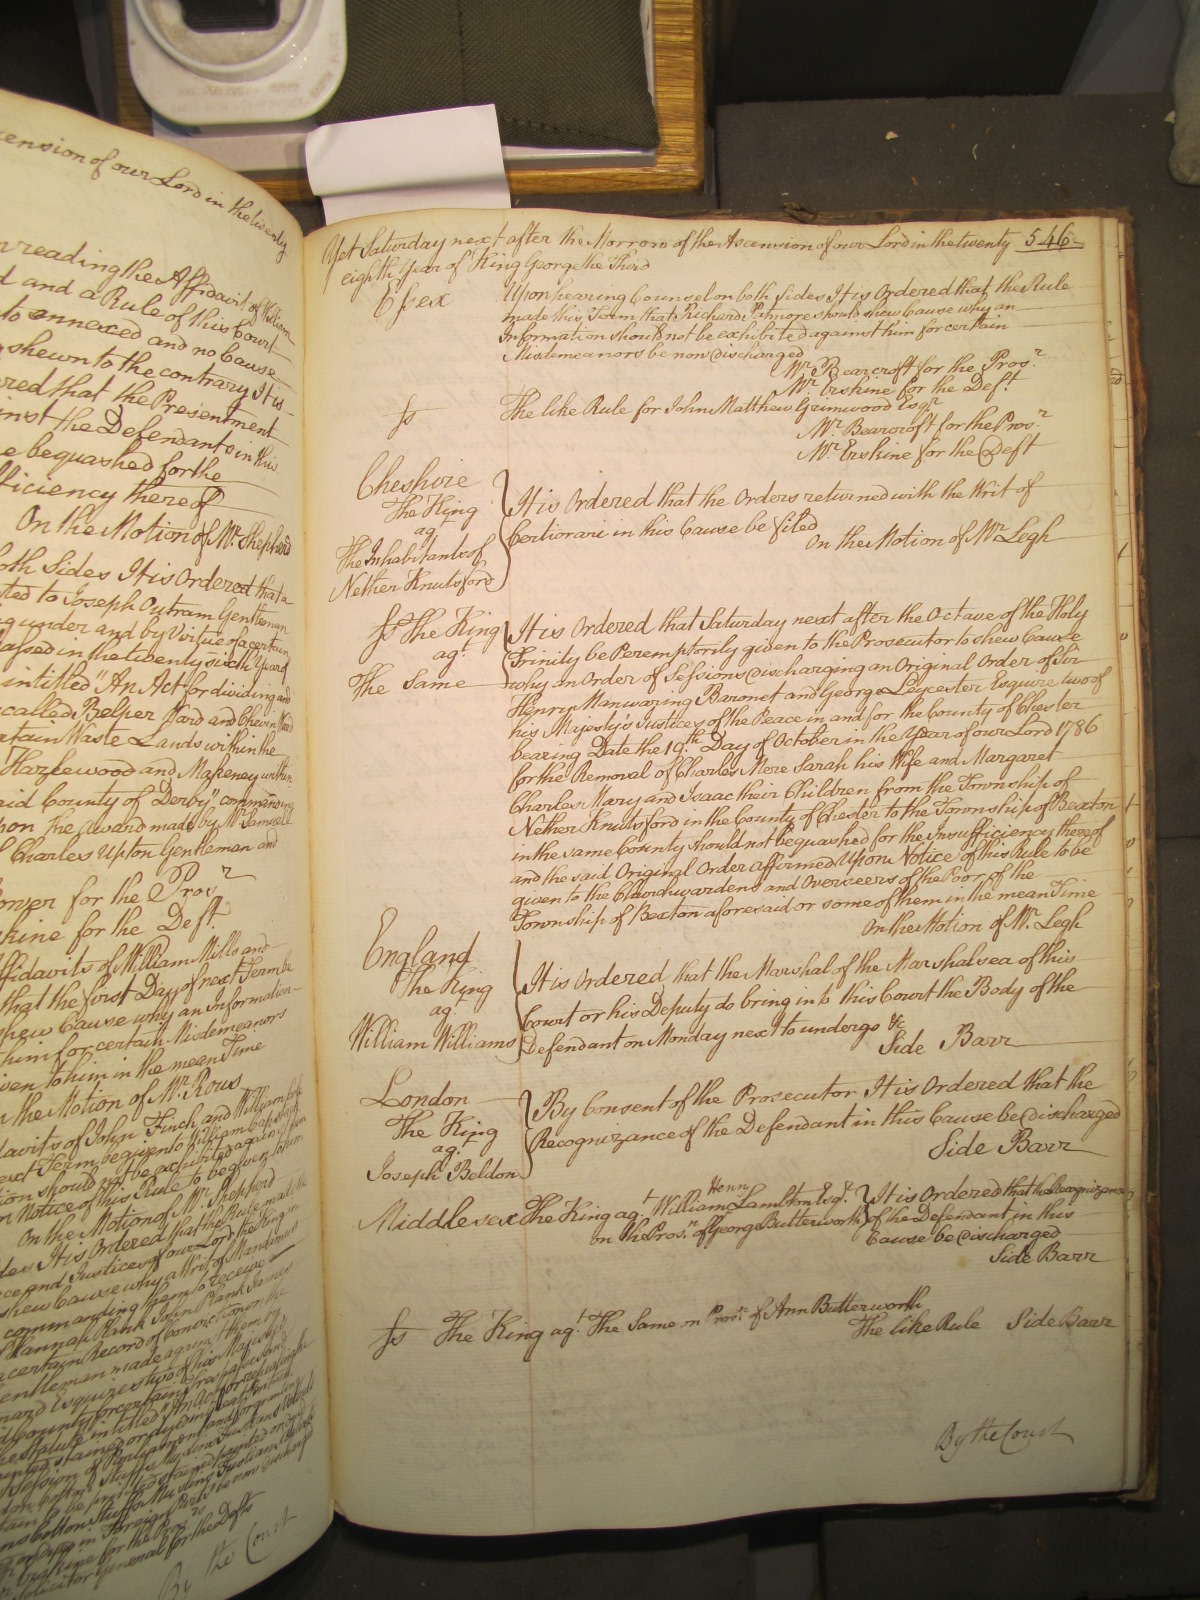 cension of our Lord in the twenty
on reading the Affidavit of William
d and a Rule of this Court
to annexed and no Cause
shewn to the contrary It is
red that the Presentment
inst the Defendants in this
e be quashed for the
fficiency thereof
On the Motion of Mr. Shepherd
oth Sides It is Ordered that a
ted to Joseph Outram Gentleman
g under and by Virtue of a certain
assed in the twenty sixth Year of
intitled "An Act for dividing and
called Belper Ward and Chevin Ward
rtain Waste Lands within the
Hazlewood and Makeney within
aid County of Derby" commencing
pon the award made by Mr. Samuel
Charles Upton Gentleman and
ower for the Prosr
kine for the Deft.
ffidavits of William Mills and
that the first Day of next Term be
shew Cause why an Information
him for certain Misdemeanors
iven to him in the mean Time
n the Motion of Mr. Rous
davits of John Finch and William
next Term be given to William
tion should not be exhibited against
n Notice of this Rule to be given to him
On the Motion of Mr. Shepherd
des It is Ordered that the Rule made
ace and Justices of our Lord the King
shew Cause why a Writ of Mandamus
commanding them to receive
Hannah Plank John Plank James
certain Record of Conviction on the
entleman made against them by
nard Esquires two of his Majesty's
d County for certain Trespasses and
he Statute intitled "An Act for repealing the
Solicitor General for the Defts
By the Court
Yet Saturday next after the Morrow of the Ascension of our Lord in the twenty 546
eighth Year of King George the Third
Essex Upon hearing Counsel on both Sides It is Ordered that the Rule
made this Term that Richard Patmore should shew Cause why an
Information should not be exhibited against him for certain
Misdemeanors be now discharged
Mr. Bearcroft for the Prosr
Mr. Erskine for the Deft.
Ss The like Rule for John Matthew Grimwood Esqr
Mr. Bearcroft for the Prosr
Mr. Erskine for the Deft
Cheshire
The King
agt
The Inhabitants of
Nether Knutsford
It is Ordered that the Orders returned with the Writ of
Certiorari in this Cause be filed
On the Motion of Mr. Legh
Ss The King
agt.
The Same
It is Ordered that Saturday next after the Octave of the Holy
Trinity be Peremptorily given to the Prosecutor to shew Cause
why an Order of Sessions discharging an Original Order of Sir
Henry Manwaring Baronet and George Leycester Esquire two of
his Majesty's Justices of the Peace in and for the County of Chester
bearing Date the 19th Day of October in the Year of our Lord 1786
for the Removal of Charles More Sarah his Wife and Margaret
Charles Mary and Isaac their Children from the Township of
Nether Knutsford in the County of Chester to the Township of Bexton
in the same County should not be quashed for the Insufficiency thereof
and the said Original Order affirmed Upon Notice of this Rule to be
given to the Churchwardens and Overseers of the Poor of the
Township of Bexton aforesaid or some of them in the mean Time
On the Motion of Mr. Legh
England
The King
agt.
William Williams
It is Ordered that the Marshal of the Marshalsea of this
Court or his Deputy do bring into this Court the Body of the
Defendant on Monday next to undergo &c
Side Barr
London
The King
agt.
Joseph Beldon
By Consent of the Prosecutor It is Ordered that the
Recognizance of the Defendant in this Cause be discharged
Side Barr
Henry
Middlesex The King agt. William Lamilton Esqr. It is Ordered that the Recognizance
on the Prosn. of George Butterworth of the Defendant in this
Cause be discharged
Side Barr
Ss The King agt. The Same on Prosn. of Ann Butterworth
The like Rule Side Barr
By the Court